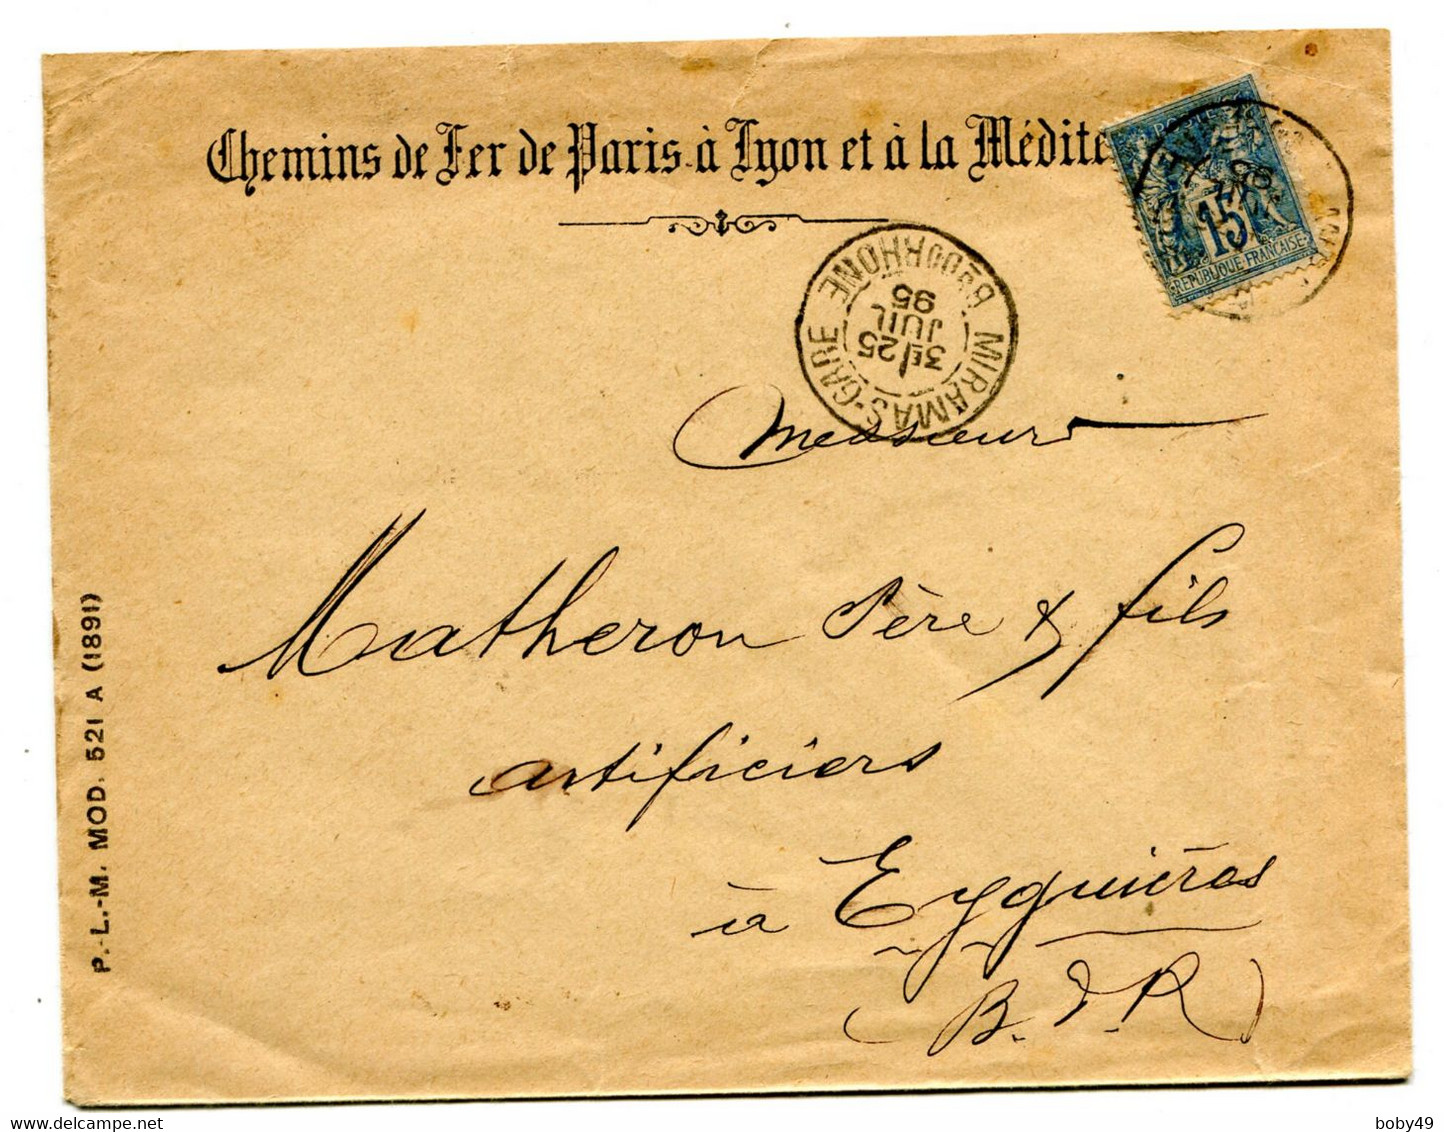 Chemins de Fer de Paris à Lyon et à la Médite
15
REPUBLIQUE FRANÇAISE
MIRAMAS-GARE
Bes DU RHONE
3E/25
JUIL
95
Messieurs
Matheron Père & fils
artificiers
à Eyguières
(B. d. R)
P.-L.-M. MOD. 521 A (1891)
boby49